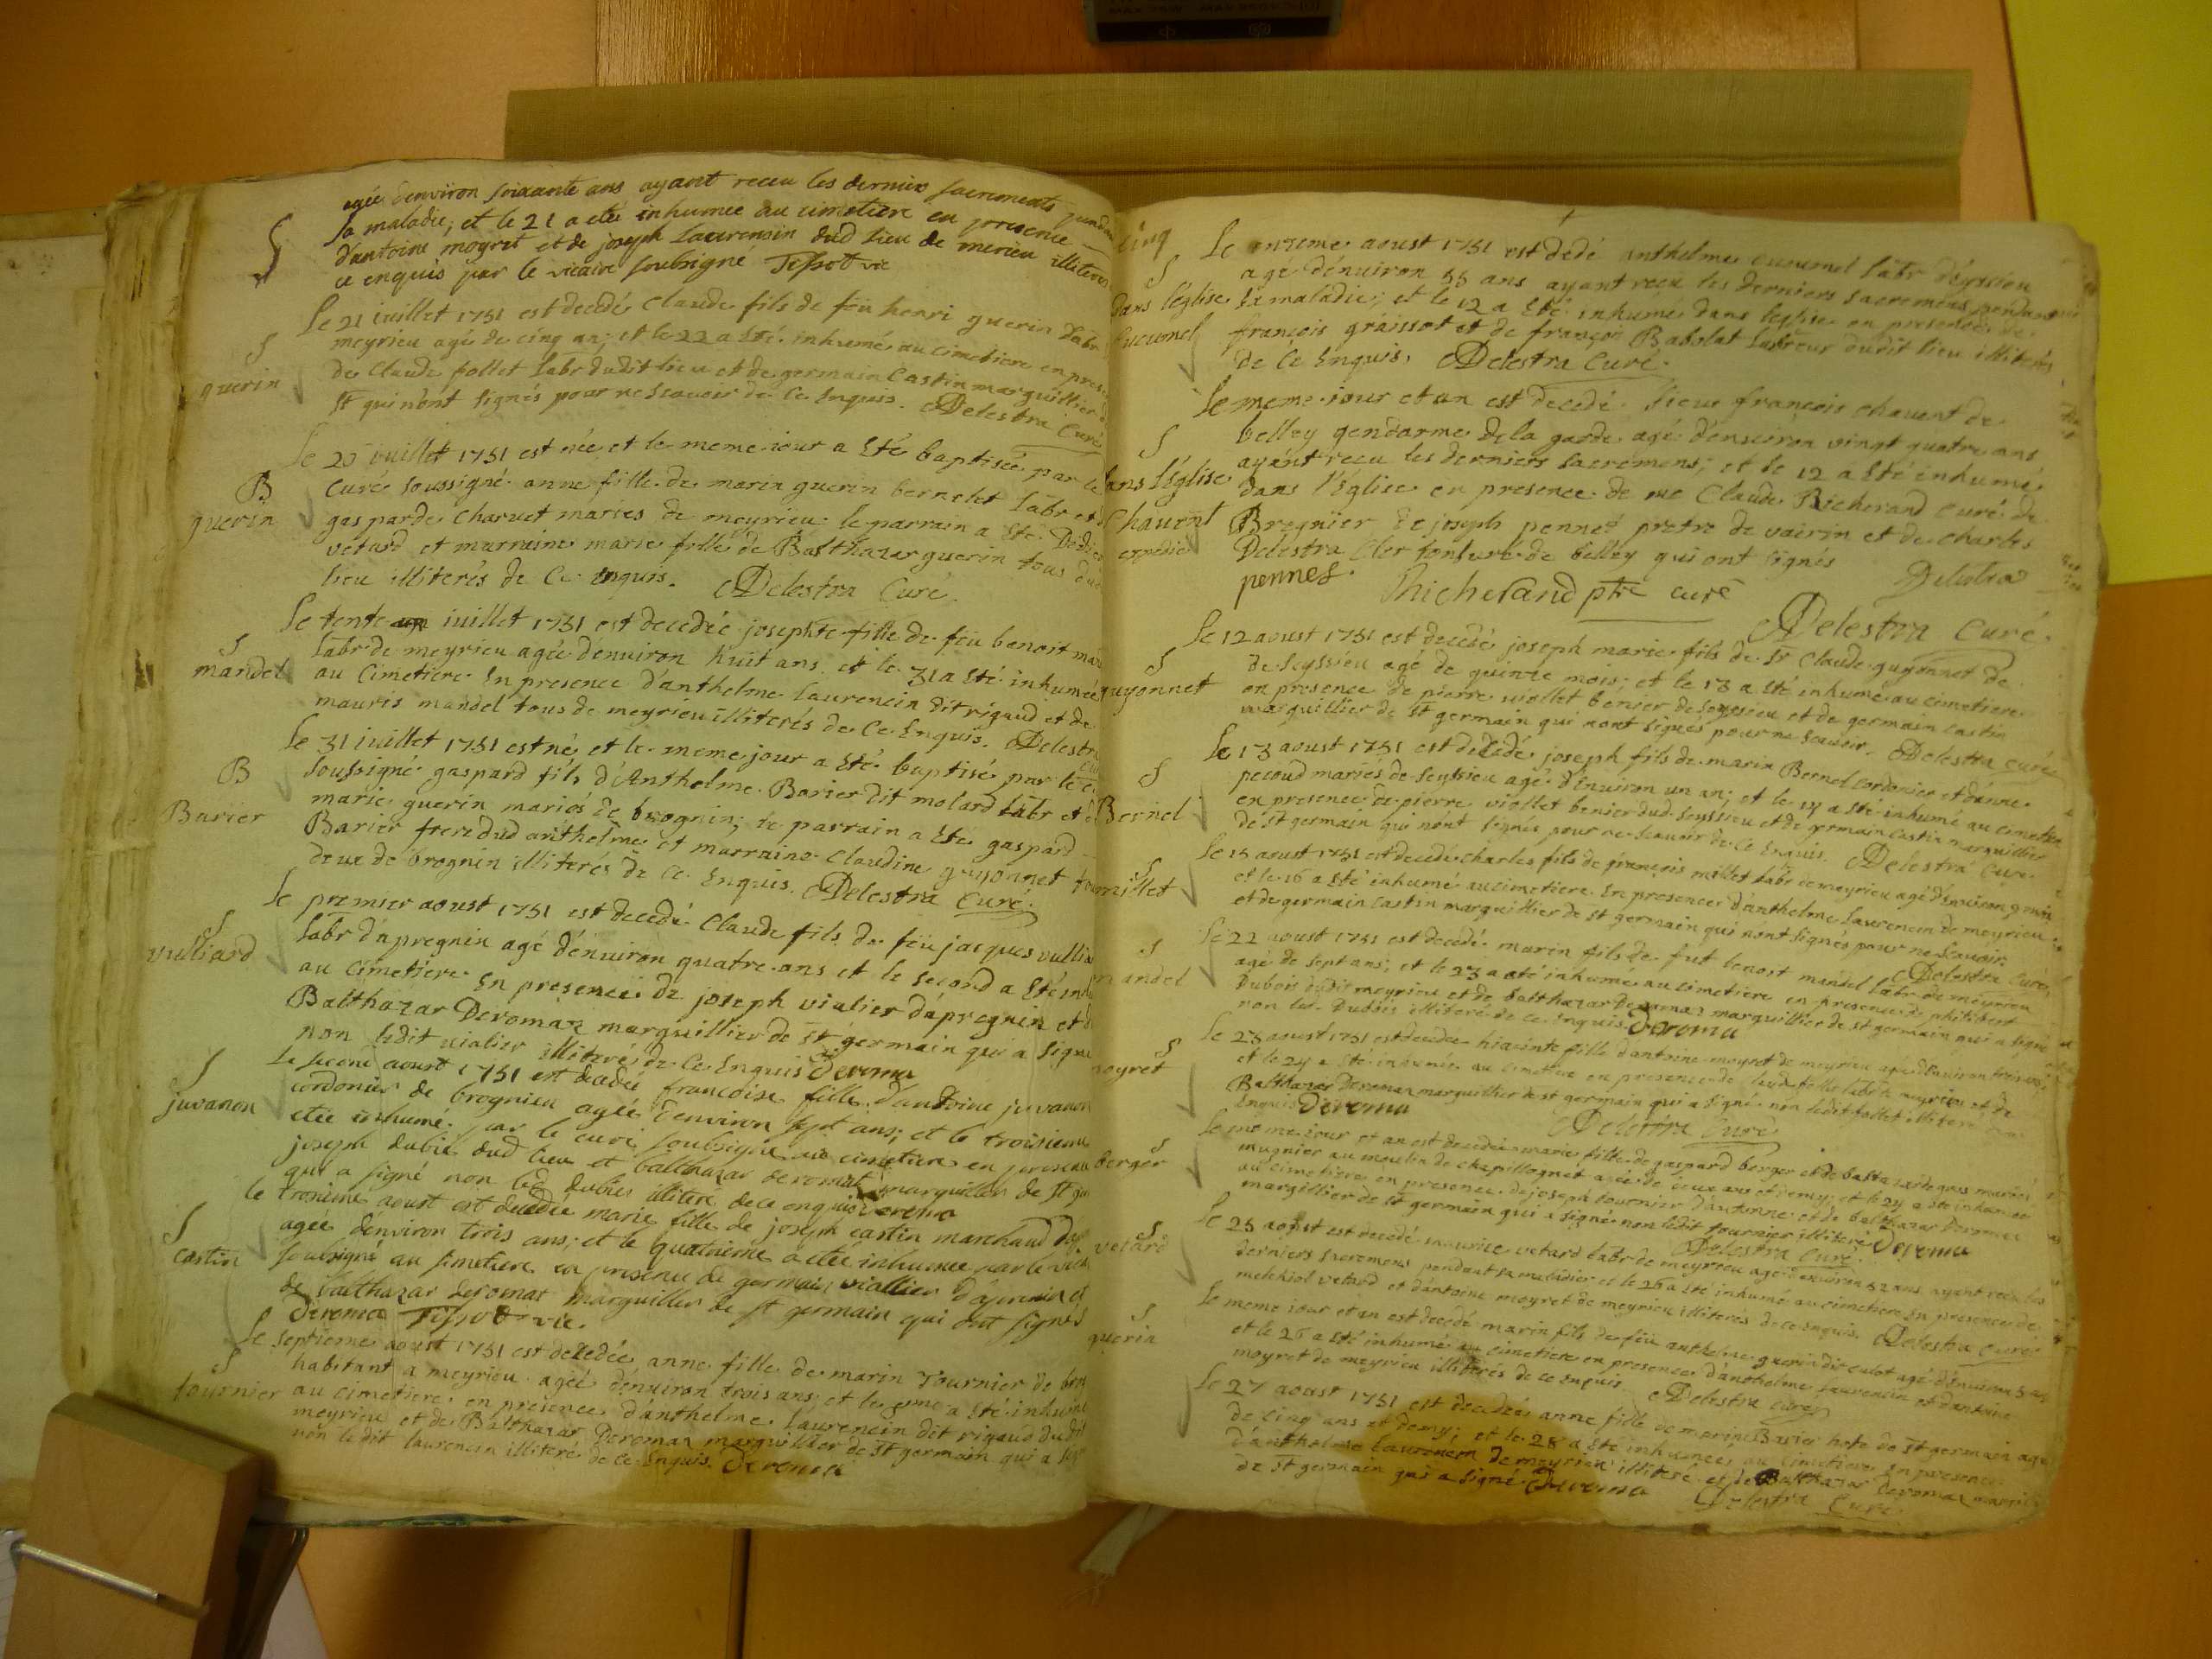 agée d'environ soixante ans ayant receu les derniers sacrements pendan
sa maladie; et le 21 a etée inhumée au cimetiere en presence
d'antoine moyret et de joseph Laurensin dud lieu de merieu illiteres
S
ce enquis par le vicaire soubsigné Tissot vic
Le 21 iuillet 1751 est decedé Claude fils de feu henri guerin Labr
S
guerin
meyrieu agé de cinq an; et le 22 a Eté inhumé au cimetiere en pres
de Claude follet Labr dudit lieu et de germain Castin marguillier
St qui n'ont signés pour ne scavoir de Ce Enquis. Delestra Curé
B
guerin
Le 23 iuillet 1751 est née et le meme iour a Eté baptisée par le
Curé soussigné anne fille de marin guerin bernelet Labr et
gasparde Charvet mariés de meyrieu le parrain a Eté
vetard et marraine marie fille de Balthazar guerin tous dud
lieu illiterés de Ce Enquis. Delestra Curé
S
mandel
Le tente iuillet 1751 est decedée josephte fille de feu benoit man
Labr de meyrieu agée d'enuiron huit ans et le 31 a Eté inhumée
au Cimetiere En presence d'anthelme laurencin dit rigaud et de
mauris mandel tous de meyrieu illiterés de Ce Enquis. Delestra
B
Barier
Le 31 iuillet 1751 est né et le meme jour a Eté baptisé par le c
soussigné gaspard fils d'Anthelme Barier dit molard Labr et d
marie guerin mariés de brognin; le parrain a Eté gaspard
Barier frere dud anthelme et marraine Claudine guyonnet to
deux de brognin illiterés de Ce Enquis. Delestra Curé.
S
vulliard
Le premier aoust 1751 est decedé Claude fils de feu jacques vullia
Labr d'apregnin agé d'enuiron quatre ans et le second a Eté inh
au Cimetiere En presence de joseph vialier d'apregnin et d
Balthazar Deromaz marguillier de St germain qui a signé
non ledit vialier illiteré de Ce Enquis Deroma
S
juvanon
Le second aoust 1751 est decedée francoise fille d'antoine juvanon
cordonier de brognieu agée d'environ sept ans; et le troisieme
etée inhumé par le curé soubsigné au cimetiere en presence
joseph dubié dud lieu et balthazar deromat marguillier de St ger
qui a signé non led dubiés illiteré de ce enquis Deroma
S
Castin
Le troisieme aoust est decedée marie fille de joseph castin marchand
agée d'environ trois ans; et le quatrieme a etée inhumée par le vica
soubsigné au simetiere en presence de germain viallier d'aprenin et
de balthazar deromat marguillier de St germain qui ont signés
Deroma Tissot vic.
S
fournier
Le septieme aoust 1751 est decedée anne fille de marin Tournier de
habitant a meyrieu agée d'enuiron trois ans; et le eme a Eté inhumé
au cimetiere en presence d'anthelme laurencin dit rigaud dudit
meyrieu et de Balthazar Deromaz marguillier de St germain qui a sig
non ledit laurencin illiteré de Ce Enquis. Deroma
cinq
S
dans l'eglise
Cucumel
Le onzieme aoust 1751 est dedé anthelme cucumel Labr d'eyssieu
agé d'enuiron 55 ans ayant receu les derniers sacremens pendant
sa maladie; et le 12 a Eté inhumé dans leglise en presence de
françois graissot et de françois Babolat Labreur dudit lieu illiterés
de Ce Enquis, Delestra Curé.
S
dans l'église
Chauent
expedié
Le meme iour et an est decedé sieur françois chauent de
belley gendarme de la garde agé d'enuiron vingt quatre ans
ayant receu les derniers sacremens; et le 12 a Eté inhumé
dans l'église en presence de me Claude Richerand Curé de
Bregnier de joseph pennet pretre de vairin et de charles
Delestra Cler tonsuré de belley qui ont signés Delestra
pennes. Richerand ptre curé
Delestra Curé.
S
guyonnet
Le 12 aoust 1751 est decedé joseph marie fils de Sr Claude guyonnet de
de Seyssieu agé de quinze mois; et le 13 a Eté inhumé au cimetiere
en presence de pierre viollet benier de seyssieu et de germain Castin
marguillier de St germain qui nont signés pour ne scavoir. Delestra Curé
S
Bernel
Le 13 aoust 1751 est decedé joseph fils de marin Bernel cordonier et d'anne
pecoud mariés de Seyssieu agé d'enuiron un an; et le 14 a Eté inhumé au cimetiere
en presence de pierre viollet benier dud seyssieu et de germain Castin marguillier
de St germain qui n'ont signés pour ne scauoir de Ce Enquis. Delestra Curé
S
millet
Le 15 aoust 1751 est decedé charles fils de françois millet Labr de meyrieu agé d'enuiron 9
et le 16 a Eté inhumé au cimetiere En presence d'anthelme laurencin de meyrieu
et de germain Castin marguillier de St germain qui nont signés pour ne scavoir
Delestra Curé
S
mandel
Le 22 aoust 1751 est decedé marin fils de fut benoit mandel Labr de meyrieu
agé de sept ans; et le 23 a été inhumé au cimetiere en presence de philibert
Dubois dudit meyrieu et de balthazar Deromaz marguillier de St germain qui a signé
non led. Dubois illiteré de ce Enquis. Deroma
S
moyret
Le 23 aoust 1751 est decedée hiacinte fille d'antoine moyret de meyrieu agée d'enuiron trois
et le 24 a Eté inhumée au cimetiere en presence de Claude follet Labr de meyrieu et de
Balthazar Deromaz marguillier de st germain qui a signé non ledit follet illiteré
Enquis Deroma
Delestra Curé
S
berger
Le meme iour et an est decedée marie fille de gaspard berger et de baltazarde gras mariés
mugnier au moulin de chapillognet agée de deux ans et demy; et le 24 a été inhumée
au cimetiere en presence de joseph tournier d'autonne et de balthazar Deromaz
margillier de St germain qui a signé non ledit tournier illiteré Deroma
Delestra Curé
S
vetard
Le 25 aoust est decedé maurice vetard Labr de meyrieu agé d'enuiron 52 ans ayant receu les
derniers sacremens pendant sa maladie et le 26 a Eté inhumé au cimetiere En presence de
melchiol vetard et d'antoine moyret de meyrieu illiterés de ce Enquis. Delestra Curé
S
guerin
Le meme iour et an est decedé marin fils de feu anthelme guerin dit culot agé d'enuiron 5 ans
et le 26 a Eté inhumé au cimetiere en presence d'anthelme laurencin et dantoine
moyret de meyrieu illiterés de ce enquis Delestra Curé
Le 27 aoust 1751 est decedée anne fille de marin Barier hote de St germain agée
de Cinq ans et demy; et le 28 a Eté inhumée au Cimetiere En presence
d'anthelme laurencin de meyrieu illiteré et de Balthazar Deromaz marg
de St germain qui a signé Deroma
Delestra Curé